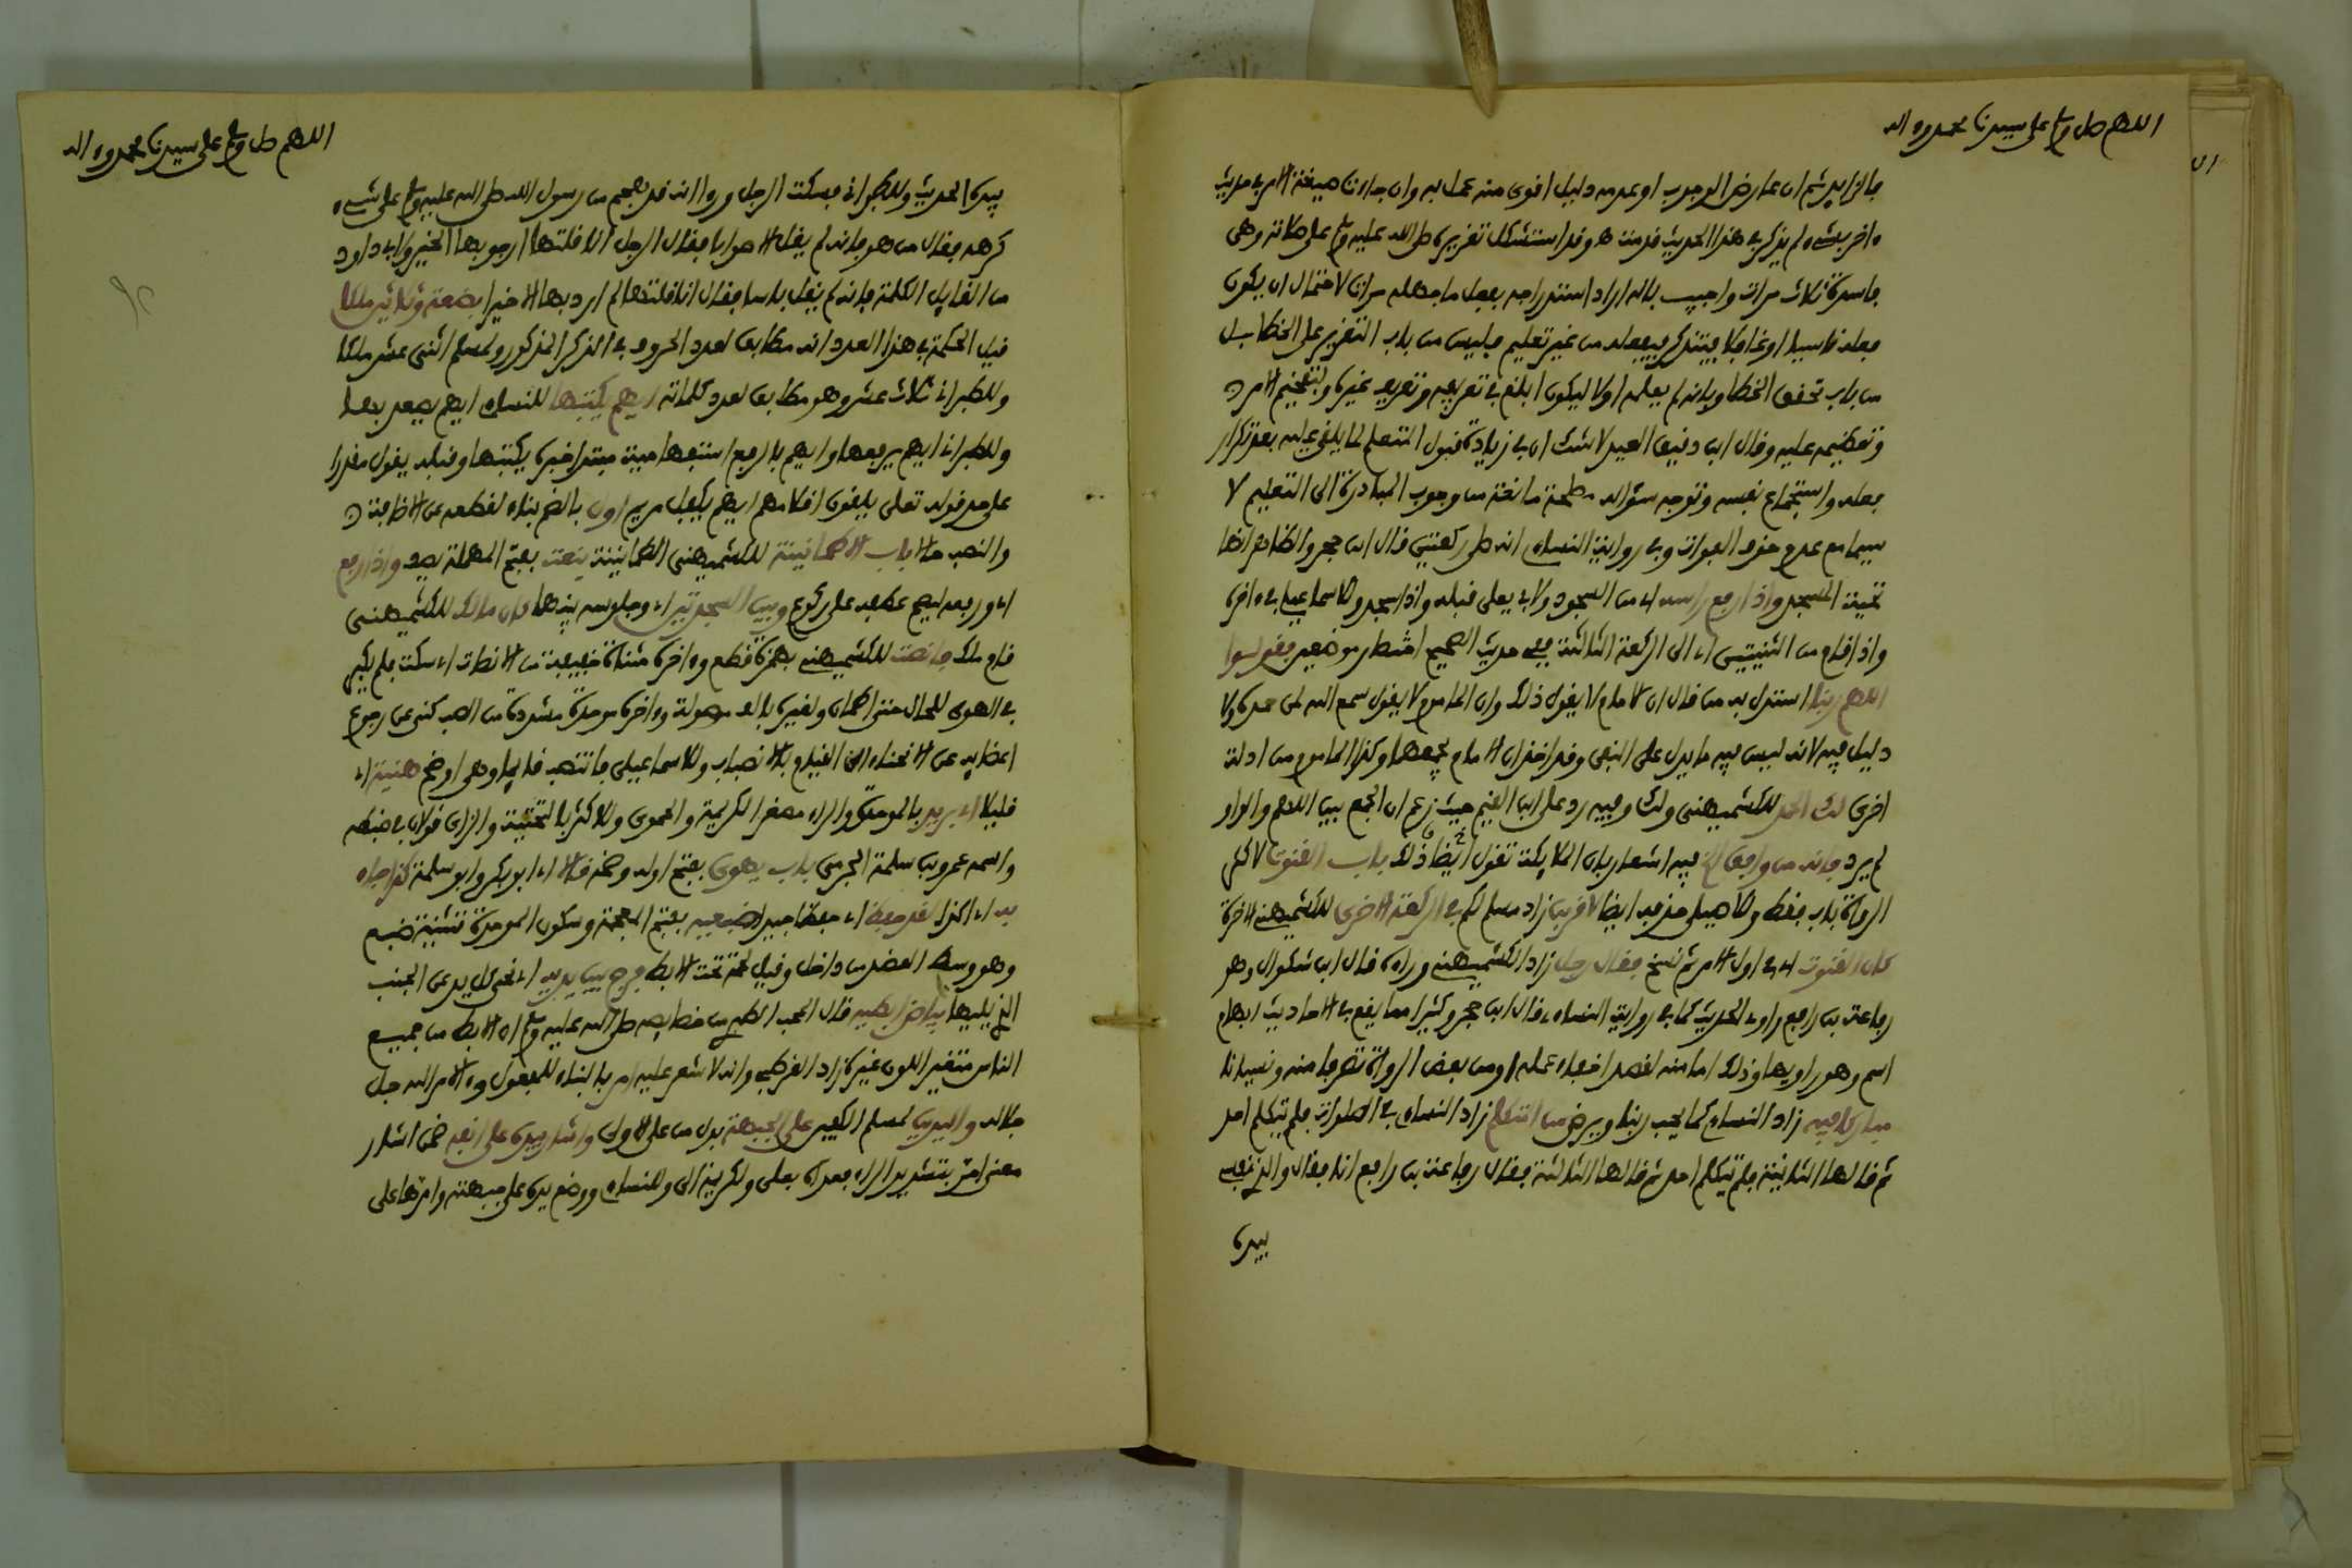 اللهم صل وسلم على سيدنا محمد وءاله
بالزايد ثم ان عارض الوجوب او عدمه دليل افوى منه عمل به وان جاءتنا صيغة الامر في حديث
ءاخر بشىء لم يذكر في هذا الحديث فدمت هو وفد استشكل تفريره صلى الله عليه وسلم على صلاته وهي
فاسدة ثلاث مرات واجيب بانه اراد استدراجه بفعل ما جهله مرات لاحتمال ان يكون
فعله ناسيا او غافلا فيتذكر فيفعله من غير تعليم فليس من باب التفرير على الخطا بل
من باب تحفق الخطا وبانه لم يعلمه اولا ليكون ابلغ في تعريفه وتعريف غيره ولتفخيم الامر
وتعظيمه عليه وفال ابن دفيق العيد لا شك ان في زيادة فبول المتعلم لما يلفى عليه بعد تكرار
فعله واستجماع نفسه وتوجه سؤاله مصلحة مانعة من وجوب المبادرة الى التعليم لا
سيما مع عدم خوف الفوات وفي رواية النساءي انه صلى ركعتين فال ابن حجر والظاهر انها
تحية المسجد واذا رفع راسه اي من السجود ولابي يعلى فبله واذا سجد وللاسماعيلي في ءاخره
واذا فام من الثنيتين اي الى الركعة الثالثة ففي حديث الصحيح اختصار موضعين فقولوا
اللهم ربنا استدل به من فال ان الامام لا يفول ذلك وان الماموم لا يفول سمع الله لمن حمده ولا
دليل فيه لانه ليس فيه ما يدل على النفي وفد اخذ ان الامام يجمعهما وكذا الماموم من ادلة
اخرى لك الحمد للكشميهني ولك وفيه رد على ابن الفيم حيث زعم ان الجمع بين اللهم والواو
لم يرد فانه من وافق الخ فيه اشعار بان الملايكة تفول ايضا ذلك باب الفنوت لاكثر
الرواة باب ففط وللاصيلي حذفه ايضا لافربن زاد مسلم لكم في الركعة الاخرى للكشميهني الاخرة
كان الفنوت اي في اول الامر ثم نسخ ففال رجل زاد الكشميهني وراءه فال ابن بشكوال وهو
رفاعة بن رافع راوي الحديث كما في رواية النساءي فال ابن حجر وكثيرا مما يفع في الاحاديث ابهام
اسم وهو راويها وذلك اما منه لفصد اخفاء عمله او من بعض الرواة تصرفا منه ونسيانا
مباركا فيه زاد النساءي كما يحب ربنا ويرضى من المتكلم زاد النساءي في الصلوات فلم يتكلم احد
ثم فالها الثانية فلم يتكلم احد ثم فالها الثالثة ففال رفاعة بن رافع انا ففال والذي نفسي
بيده
اللهم صل وسلم على سيدنا محمد وءاله
بيده الحديث وللطبراني فسكت الرجل ورءا انه فد هجم من رسول الله صلى الله عليه وسلم على شيء
كرهه ففال من هو فانه لم يفل الا صوابا ففال الرجل انا فلتها ارجو بها الخير ولابي داود
من الفايل الكلمة فانه لم يفل باسا ففال انا فلتها لم ارد بها الا خيرا بضعة وثلاثين ملكا
فيل الحكمة في هذا العدد انه مطابق لعدد الحروف في الذكر المذكور ولمسلم اثني عشر ملكا
وللطبراني ثلاث عشر وهو مطابق لعدد كلماته ايهم يكتبها للنساءي ايهم يصعد بها
وللطبراني ايهم يرفعها وايهم بالرفع استفهامية مبتدا خبره يكتبها وفبله يفول مفدرا
على حد فوله تعلى يلفون افلامهم ايهم يكفل مريم اول بالضم بناء لفطعه عن الاضافة
والنصب حالا باب الاطمانينة للكشميهني الطمانينة ينعت بفتح المهملة يصف واذا رفع
اي ورفعه ليصح عطفه على ركوع وبين السجدتين اي وجلوسه بينهما كان مالك للكشميهني
فام ملك فانصت للكشميهني بهمزة فطع وءاخره مثناة خفيفة من الانصات اي سكت فلم يكبر
في الهوى للحال حتى اطمان ولغيره بالف موصولة وءاخره موحدة مشددة من الصب كنى عن رجوع
اعضايه عن الانحناء الى الفيام بالانصباب وللاسماعيلي فانتصب فايما وهي اوضح هنية اي
فليلا ابي بريد بالموحدة والراء مصغر الكريمة والحموي وللاكثر بالتحتية والزاي فولان في ضبطه
واسمه عمرو بن سلمة الجرمي باب يهوي بفتح اوله وضمه فالا اي ابو بكر وابو سلمة كذا جاء
به اي اكذا لفد حفظ اي حفظا جيدا ضبعيه بفتح المعجمة وسكون الموحدة تثنية ضبع
وهو وسط العضد من داخل وفيل لحمة تحت الابط فرج بين يديه اي نحى كل يد عن الجنب
الذي يليها بياض ابطيه فال المحب الطبري من خصايصه صلى الله عليه وسلم ان الابط من جميع
الناس متغير اللون غيره زاد الفرطبي وانه لا شعر عليه امر بالبناء للمفعول والامر الله جل
جلاله واليدين لمسلم الكفين على الجبهة بدل من على الاولى واشار بيده على انفه ضمن اشار
معنى امر بتشديد الراء فعداه بعلى ولكريمة الى وللنساءي ووضع يده على جبهته وامرها على